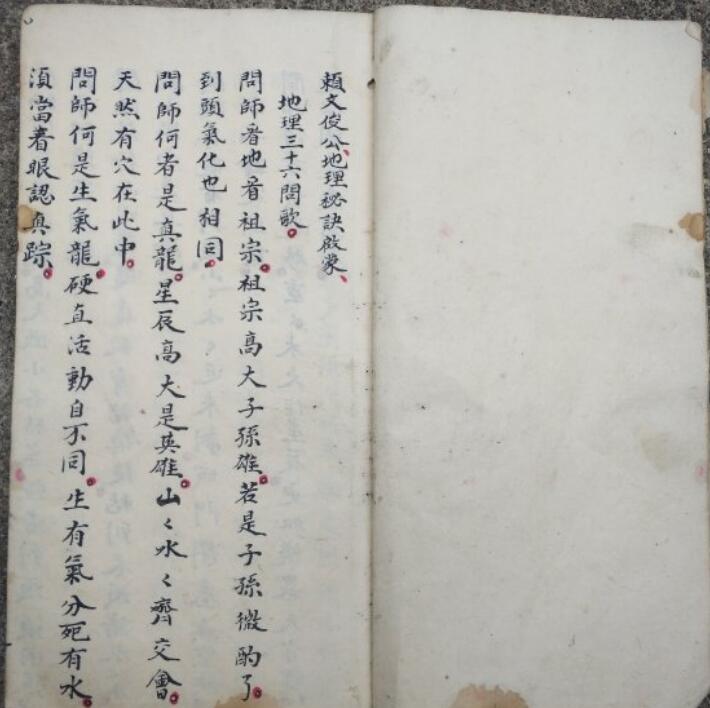 頼文俊公、地理祕訣啟蒙、
地理三十六問歌。
問師看地看祖宗。祖宗高大子孫雄。若是子孫微酌了。
到頭氣化也相同。
問師何者是真龍。星辰高大是英雄。山々水々齊交會。
天然有穴在此中。
問師何是生氣龍。硬直活動自不同。生有氣分死有水。
須當着眼認真踪。